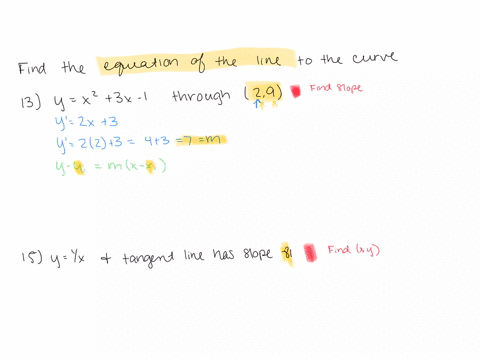 Find the equation of the line to the curve
13) y = x² + 3x - 1 through (2,9) Find slope
y' = 2x + 3
y' = 2(2) + 3 = 4+3 = 7 = m
y - y = m(x - x)
15) y = 1/x & tangent line has slope Find (x,y)